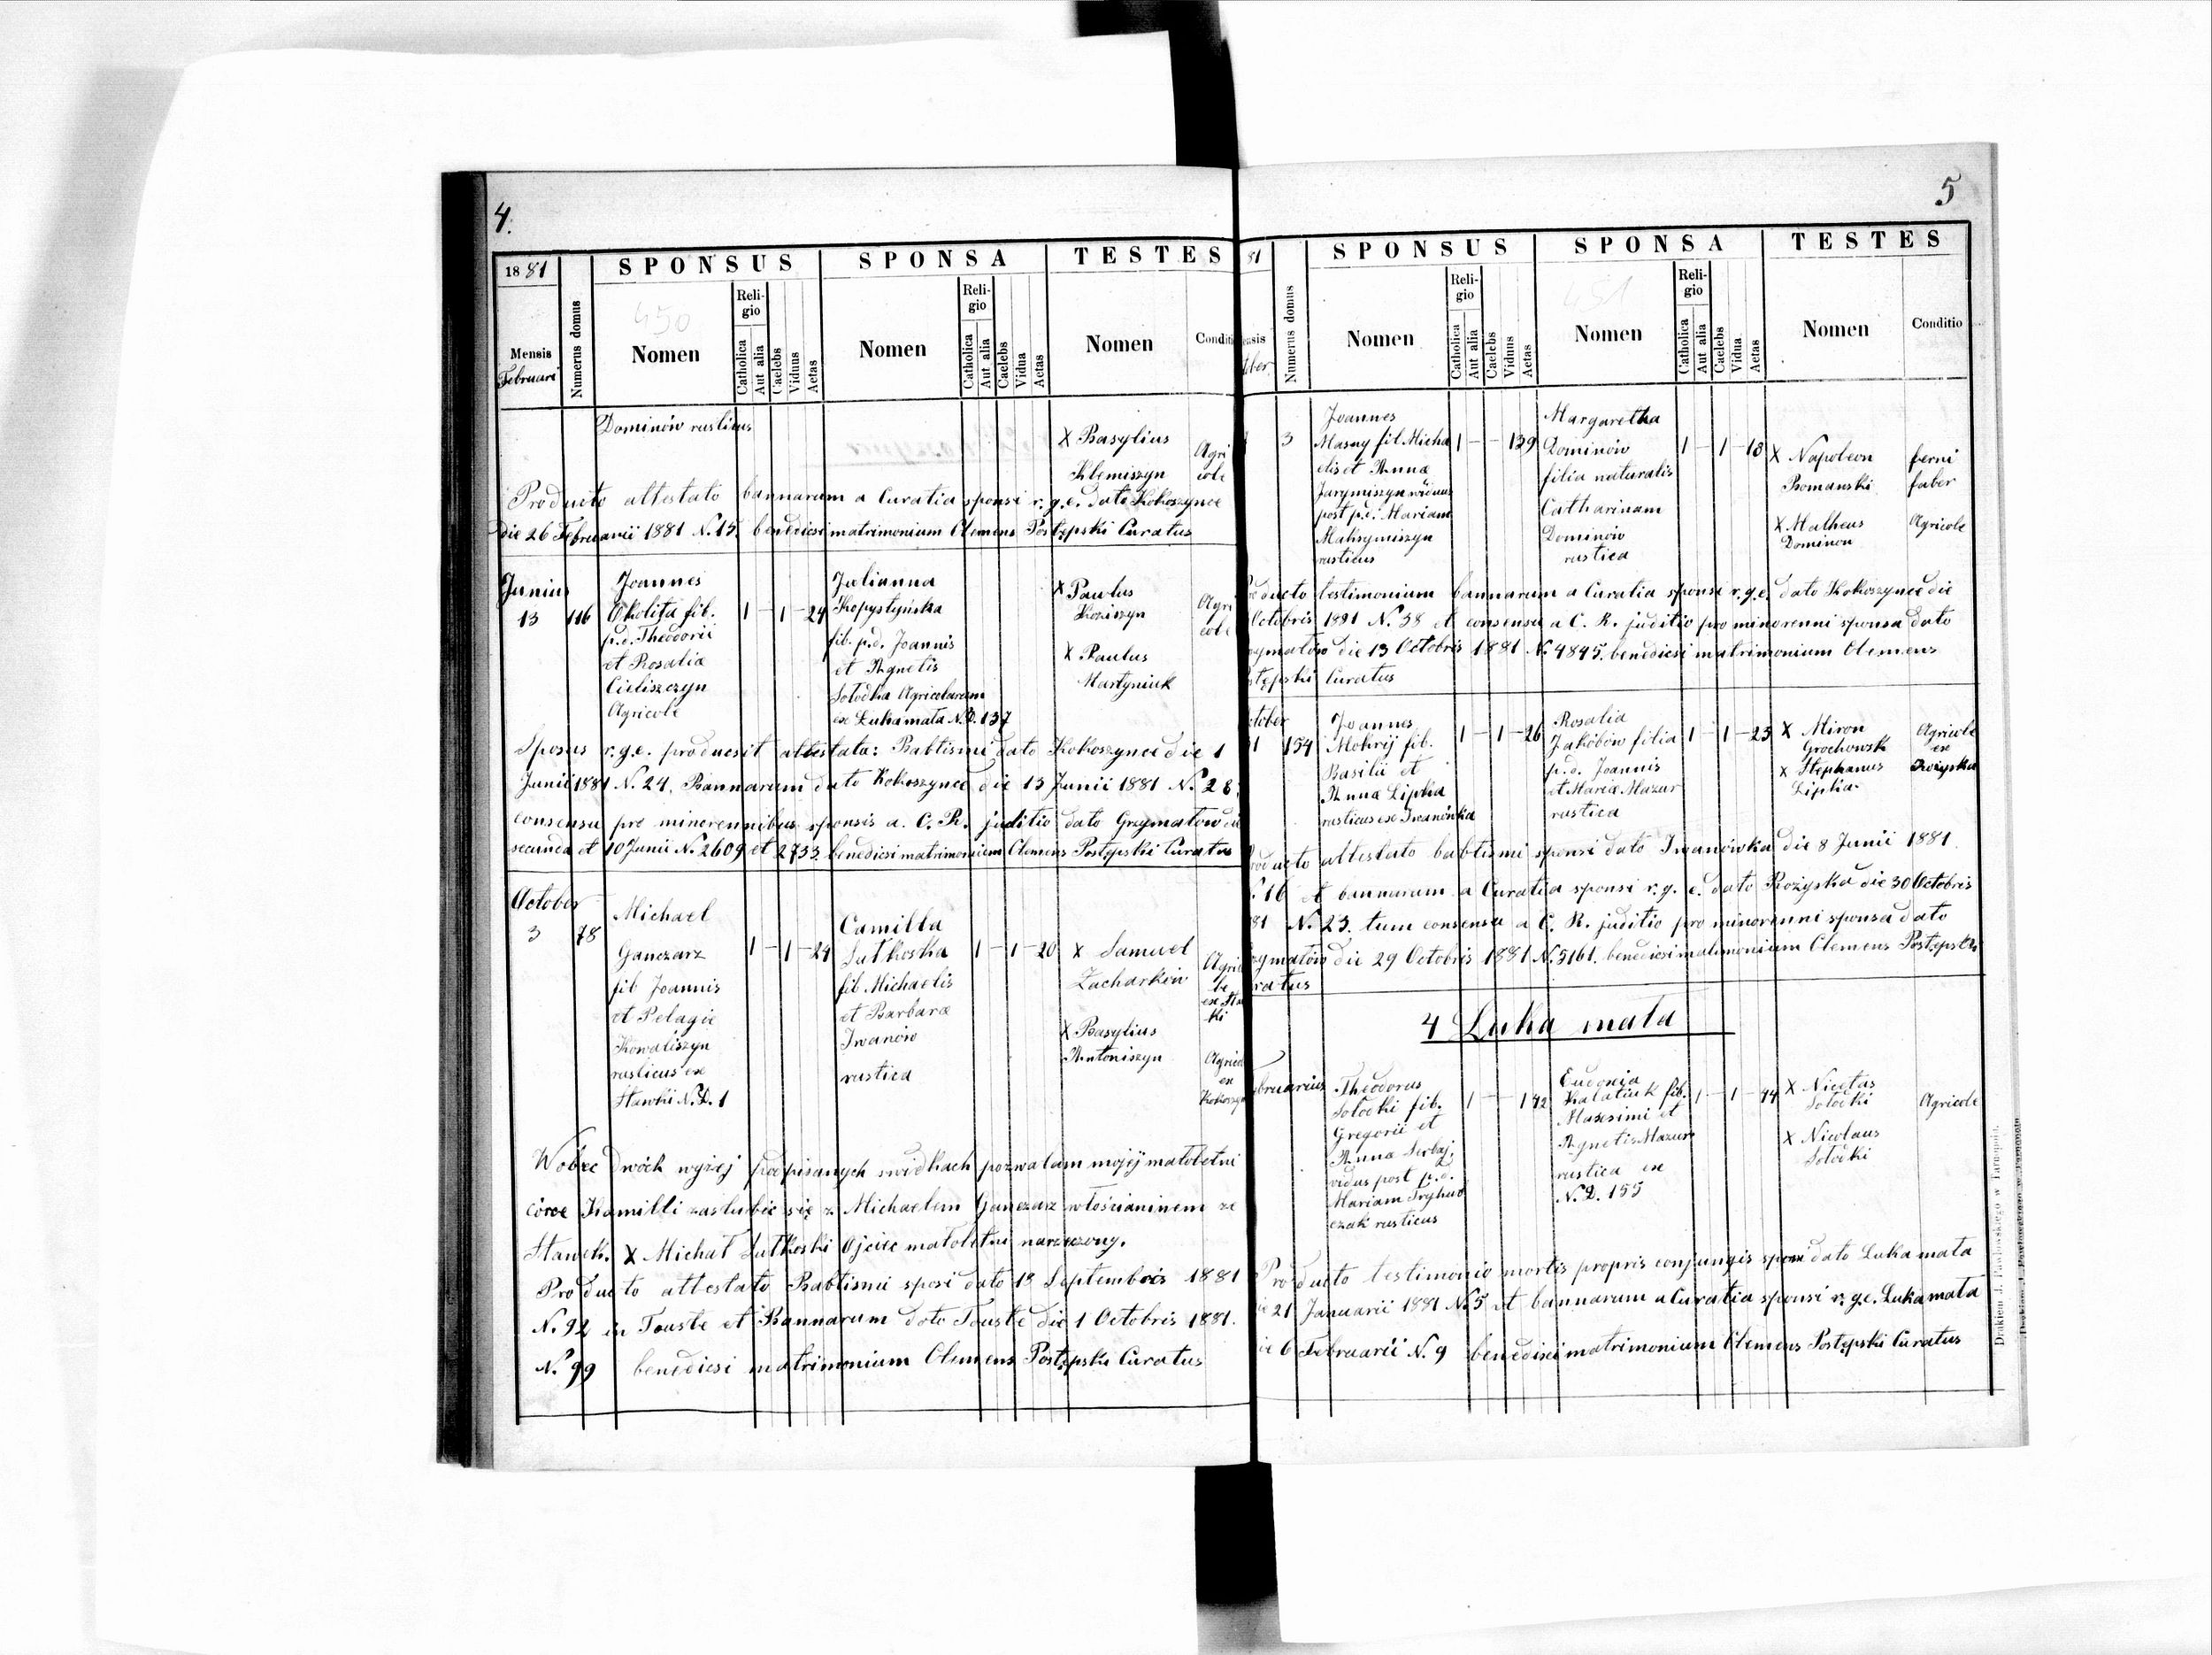 4.
1881
SPONSUS SPONSA TESTES
Mensis Februari
Numerus domus
450
Nomen
Religio
Catholica
Aut alia
Caelebs
Viduus
Aetas
Nomen
Religio
Catholica
Aut alia
Caelebs
Vidua
Aetas
Nomen
Conditi
Dominów rusticus
X Basylius
Klemiszyn
Agri
cole
Producto attestato bannarum a Curatia sponsi r.g.e. dato Kokoszynce
die 26 Februarii 1881 N. 15. benedicsi matrimonium Clemens Postępski Curatus
Junius
13 116
Joannes
Okolita fil.
p.d. Theodorii
et Rosaliæ
Cieliszczyn
Agricole
1 – 1 – 24
Julianna
Kopystyńska
fil. p.d. Joannis
et Agnetis
Sołodka Agricolarum
ex Lukamała N.D. 137
X Paulus
Koziszyn
X Paulus
Martyniuk
Agri
cole
Sposus r.g.e. producsit attestata: Babtismi dato Kokoszynce die 1
Junii 1881 N. 24, Bannarum dato Kokoszynce die 13 Junii 1881 N. 28;
consensu pro minorennibus sponsis a. C. R. juditio dato Grzymałow die
secunda et 10 Junii N. 2609 et 2733 benedicsi matrimonium Clemens Postępski Curatus
October
3 78
Michael
Ganczarz
fil Joannis
et Pelagie
Kowaliszyn
rusticus ex
Stawki N.D. 1
1 – 1 – 24
Camilla
Lutkoska
fil. Michaelis
et Barbaræ
Iwanów
rustica
1 – 1 – 20
X Samuel
Zacharkiw
X Basylius
Antoniszyn
Wobec dwóch wyżej podpisanych swidkach pozwalam mojéj małoletni
córce Kamilli zaslubic się z Michaelem Ganczarz włościaninem ze
Stawek. X Michał Lutkoski Ojciec małoletni narzeczony.
Producto attestato Babtismi sposi dato 13 Septembris 1881
N. 92 in Touste et Bannarum doto Touste die 1 Octobris 1881.
N. 99 benedicsi matrimonium Clemens Postępski Curatus
5
81
SPONSUS SPONSA TESTES
Numerus domus
Nomen
Religio
Catholica
Aut alia
Caelebs
Viduus
Aetas
451
Nomen
Religio
Catholica
Aut alia
Caelebs
Vidua
Aetas
Nomen
Conditio
3
Joannes
Masny fil. Micha
elis et Annæ
Jarymiszyn viduus
post p.d. Mariam
Maksymiszyn
rusticus
1 – – 1 39
Margaretha
Dominów
filia naturalis
Catharinam
Dominów
rustica
1 – 1 – 18
X Napoleon
Romanski
X Matheus
Dominow
ferri
faber
Agricole
ducto testimonium bannarum a Curatia sponsi r.g.e. dato Kokoszynce die
Octobris 1881 N. 38 et consensu a C. R. juditio pro minorenni sponsa dato
ymatów die 13 Octobris 1881 N. 4845. benedicsi matrimonium Clemens
stępski Curatus
tober
154
Joannes
Mokrij fil.
Basilii et
Annæ Lipka
rusticus ex Iwanówka
1 – 1 – 26
Rosalia
Jakóbów filia
p.d. Joannis
et Mariæ Mazur
rustica
1 – 1 – 23
X Miron
Grochowsk
X Stephanus
Lipka
Agricole
ex
Rożyska
ducto attestato babtismi sponsi dato Iwanówka die 8 Junii 1881
N. 16 et bannarum a Curatia sponsi r.g.e. dato Rożyska die 30 Octobris
81 N. 23. tum consensu a C. R. juditio pro minorenni sponsa dato
ymatów die 29 Octobris 1881 N. 5161. benedicsi matrimonium Clemens Postępski
ratus
4 Luka mała
bruarius
Theodorus
Sołodki fil.
Gregorii et
Anna Serbaj
vidus post p.d.
Mariam Tryhub
czak rusticus
1 – – 1 42
Eudonia
Kalatiuk fil.
Macsimi et
Agnetis Mazur
rustica ex
N.D. 155
1 – 1 – 44
X Nicetas
Sołodki
X Nicolaus
Sołodki
Agricole
Producto testimonio mortis propris conjungis sponsi dato Luka mała
die 21 Januarii 1881 N. 5 et bannarum a Curatia sponsi r.g.e. Luka mała
die 6 Februarii N. 9 benedicsi matrimonium Clemens Postępski Curatus
Drukiem J. Pawłowskiego w Tarnopolu.